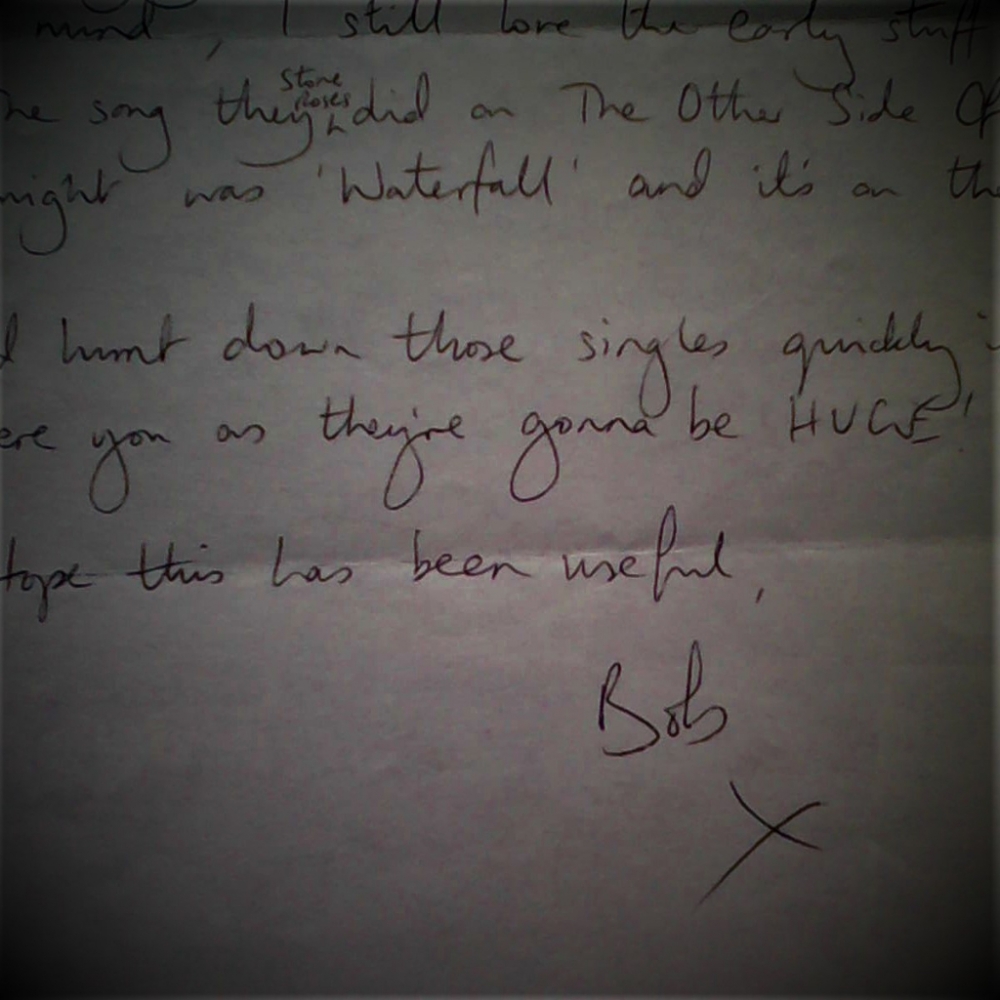 mind, I still love the early stuff
he song they did on The Other Side Of
stone
roses
night was 'Waterfall' and it's on th
hunt down those singles quickly i
ere you as they're gonna be HUGE!
Hope this has been useful,
Bob
X